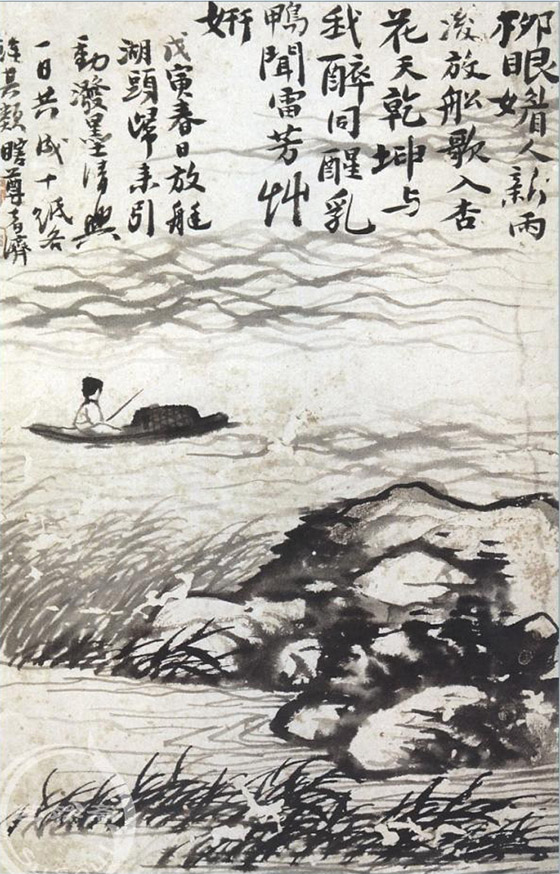 柳眼看人新雨
後放舩歌入杏
花天乾坤与
我醉同醒乳
鴨聞雷芳艸
妍
戊寅春日放艇
湖頭歸來引
動潑墨清興
一日共成十紙各
其類瞎尊者濟